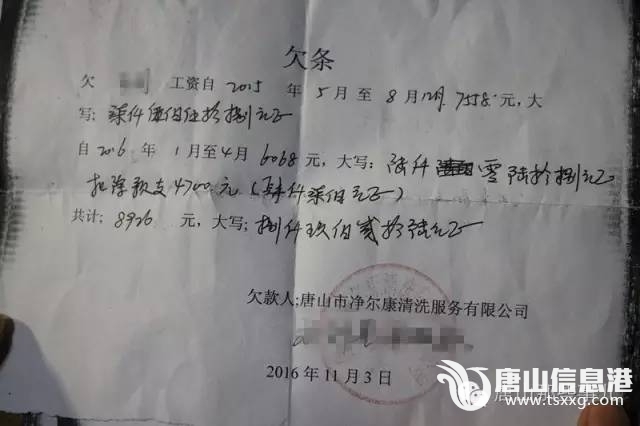 欠条
欠 工资自 2015 年 5月 至 8月12月 7558 元，大
写：柒仟伍佰伍拾捌元正
自 2016 年 1月至4月 6068 元，大写：陆仟 零陆拾捌元正
扣除预支4700元（肆仟柒佰元正）
共计：8926 元，大写；捌仟玖佰贰拾陆元正
欠款人：唐山市净尔康清洗服务有限公司
2016 年 11 月 3 日
唐山信息港
www.tsxxg.com